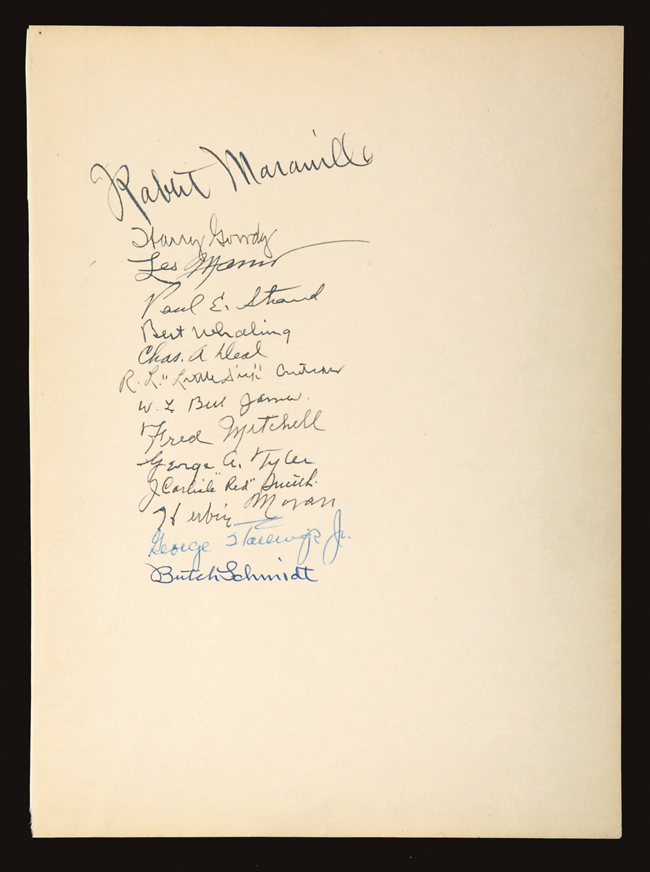 Rabbit Maranville
Harry Gowdy
Les Mann
Paul E. Strand
Bert Whaling
Chas. A Deal
R. L. "Little Dick" Crutcher
W. L. Bill James.
Fred Mitchell
George A. Tyler
J Carlisle "Red" Smith.
Herbie Moran
George Stallings Jr.
Butch Schmidt